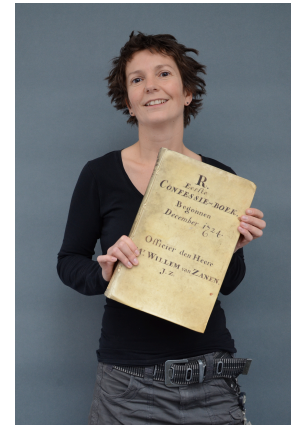 R.
Eerste
CONFESSIE-BOEK.
Begonnen
December 1724.
Officier den Heere
Mr. WILLEM van ZANEN
J. z.